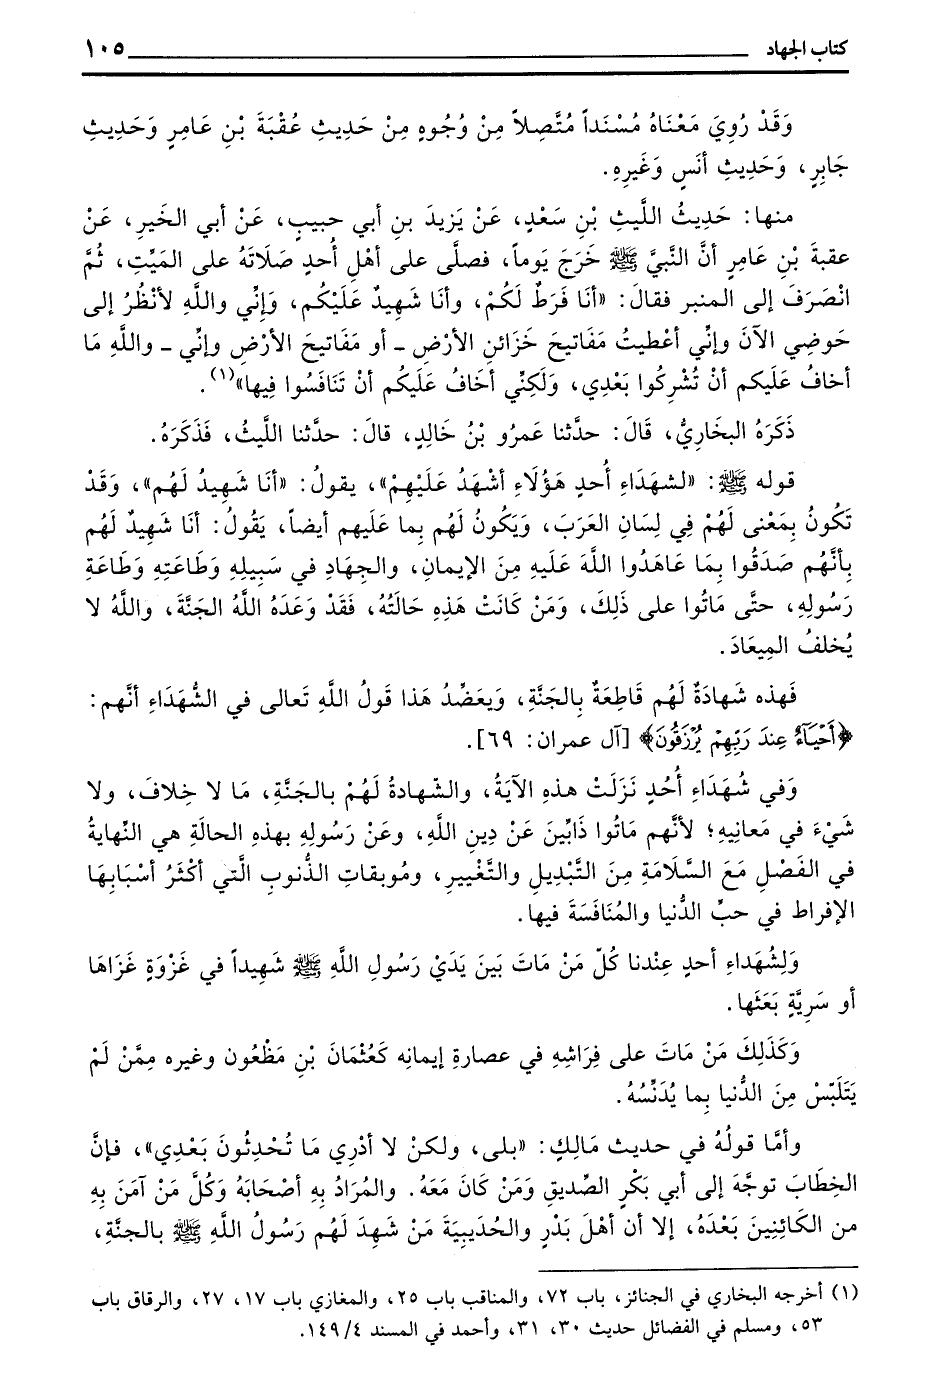 كتاب الجهاد ١٠٥
وَقَدْ رُوِيَ مَعْنَاهُ مُسْنَداً مُتَّصِلاً مِنْ وُجُوهٍ مِنْ حَدِيثِ عُقْبَةَ بْنِ عَامِرٍ وَحَدِيثِ
جَابِرٍ، وَحَدِيثِ أنَسٍ وَغَيرِهِ.
منها: حَدِيثُ اللَّيثِ بْنِ سَعْدٍ، عَنْ يَزِيدَ بنِ أبي حبيبٍ، عَنْ أبي الخَيرِ، عَنْ
عقبةَ بْنِ عَامِرٍ أنَّ النَّبيَّ ﷺ خَرَجَ يَوماً، فصلَّى على أهْلِ أُحدٍ صَلَاتَهُ على المَيِّتِ، ثُمَّ
انْصَرَفَ إلى المنبرِ فقالَ: «أنَا فَرَطٌ لَكُمْ، وأنَا شَهِيدٌ عَلَيْكُم، وَإنِّي واللَّهِ لأنْظُرُ إلى
حَوضِي الآنَ وإنِّي أُعْطيتُ مَفَاتيحَ خَزَائنِ الأرْضِ ـ أو مَفَاتيحَ الأرْضِ وإنِّي ـ واللَّهِ مَا
أخافُ عَلَيكم أنْ تُشْرِكُوا بَعْدِي، وَلَكِنِّي أخَافُ عَلَيكُم أنْ تَنَافَسُوا فِيها»(١).
ذَكَرَهُ البخَاريُّ، قَالَ: حدَّثنا عَمرُو بْنُ خَالِدٍ، قالَ: حدَّثنا اللَّيثُ، فَذَكَرَهُ.
قوله ﷺ: «لشهَدَاءِ أُحدٍ هَؤُلَاءِ أشْهَدُ عَلَيْهِمْ»، يقولُ: «أنَا شَهِيدٌ لَهُم»، وَقَدْ
تَكُونُ بِمَعْنى لَهُمْ فِي لِسَانِ العَرَبَ، وَيَكُونُ لَهُم بِما عَلَيهم أيضاً، يَقُولُ: أنَا شَهِيدٌ لَهُم
بِأنَّهُم صَدَقُوا بِمَا عَاهَدُوا اللَّهَ عَلَيهِ مِنَ الإيمانِ، والجِهَادِ في سَبِيلِهِ وَطَاعَتِهِ وَطَاعَةِ
رَسُولِهِ، حتَّى مَاتُوا على ذَلِكَ، وَمَنْ كَانَتْ هَذِهِ حَالَتُهُ، فَقَدْ وَعَدَهُ اللَّهُ الجَنَّةَ، واللَّهُ لا
يُخلفُ المِيعَادَ.
فَهذه شَهادَةٌ لَهُم قَاطِعَةٌ بِالجَنَّةِ، وَيعَضِّدُ هَذا قَولُ اللَّهِ تَعالى في الشُّهَدَاءِ أنَّهم:
﴿أَحْيَآءٌ عِندَ رَبِّهِمْ يُرْزَقُونَ﴾ [آل عمران: ٦٩].
وَفي شُهَدَاءِ أُحُدٍ نَزَلَتْ هذهِ الآيَةُ، والشّهادةُ لَهُمْ بالجَنَّةِ، مَا لا خِلافَ، ولا
شَيْءَ في مَعانِيهِ؛ لأنَّهم مَاتُوا ذَابِّينَ عَنْ دِينِ اللَّهِ، وعَنْ رَسُولِهِ بهذهِ الحالَةِ هي النِّهايةُ
في الفَضْلِ مَعَ السَّلَامَةِ مِنَ التَّبْدِيلِ والتَّغْييرِ، ومُوبقاتِ الذُّنوبِ الَّتي أكْثَرُ أسْبَابِهَا
الإفراط في حبِّ الدُّنيا والمُنَافَسَةَ فيها.
وَلِشُهَداءِ أحدٍ عِنْدنا كُلّ مَنْ مَاتَ بَينَ يَدَيْ رَسُولِ اللَّهِ ﷺ شَهِيداً في غَزْوَةٍ غَزَاهَا
أو سَرِيَّةٍ بَعَثَها.
وَكَذَلِكَ مَنْ مَاتَ على فِرَاشِهِ في عصارةِ إيمانِه كَعُثْمَانَ بْنِ مَظْعُون وغيره مِمَّنْ لَمْ
يَتَلَبّسْ مِنَ الدُّنيا بِما يُدَنِّسُهُ.
وأمَّا قولُهُ في حديث مَالِكٍ: «بلى، ولكنْ لا أدْرِي مَا تُحْدِثُونَ بَعْدِي»، فإنَّ
الخِطَابَ توجَّهَ إلى أبي بَكْرٍ الصِّديقِ وَمَنْ كَانَ مَعَهُ. والمُرَادُ بِهِ أصْحَابَهُ وَكُلَّ مَنْ آمَنَ بِهِ
من الكَائِنِينَ بَعْدَهُ، إلا أن أهْلَ بَدْرٍ والحُدَيبِيَةَ مَنْ شهِدَ لَهُم رَسُولُ اللَّهِ ﷺ بالجنَّةِ،
(١) أخرجه البخاري في الجنائز، باب ٧٢، والمناقب باب ٢٥، والمغازي باب ١٧، ٢٧، والرقاق باب
٥٣، ومسلم في الفضائل حديث ٣٠، ٣١، وأحمد في المسند ١٤٩/٤.